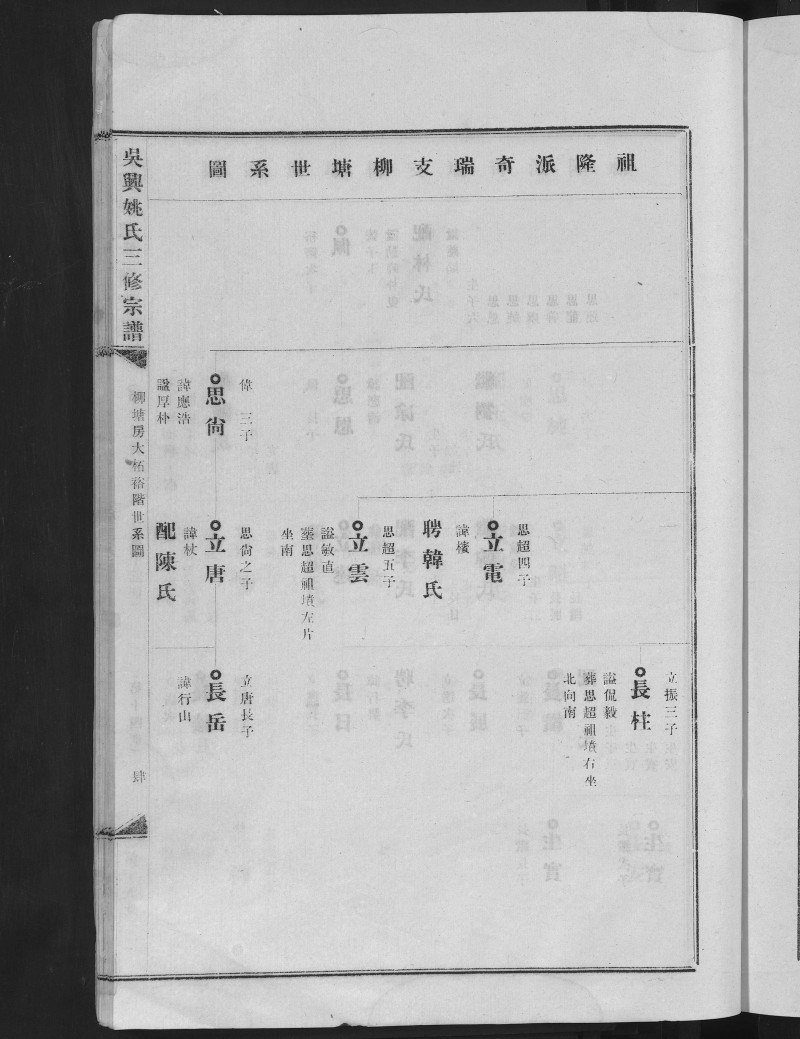 祖隆派奇瑞支柳塘世系圖
偉三子
思尙
諱應浩
謚厚朴
思超四子
立電
諱檖
聘韓氏
思超五子
立雲
謚敏直
塟思超祖墳左片
坐南
思尙之子
立唐
諱杖
配陳氏
立振三子
長柱
謚侃毅
葬思超祖墳右坐
北向南
立唐長子
長岳
諱行山
吳興姚氏三修宗譜
柳塘房大柘裕階世系圖
肆